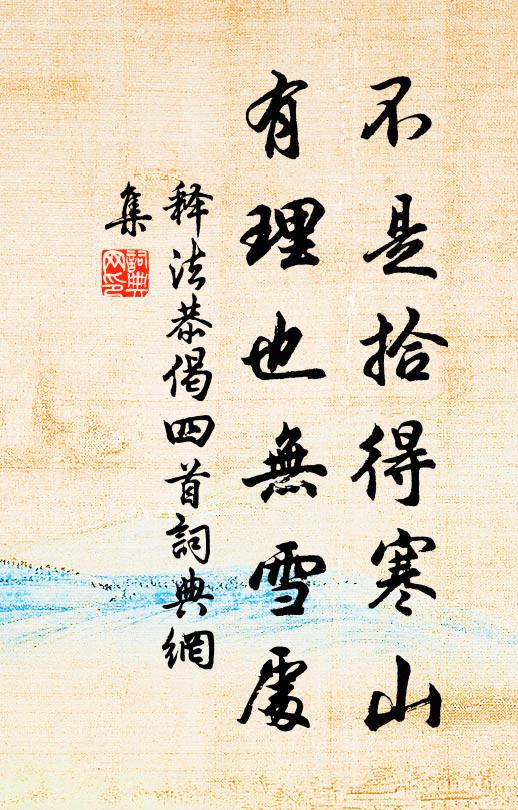 不是拾得寒山
有理也無雪處
释法恭偈四首詞典網
集
詞典網印